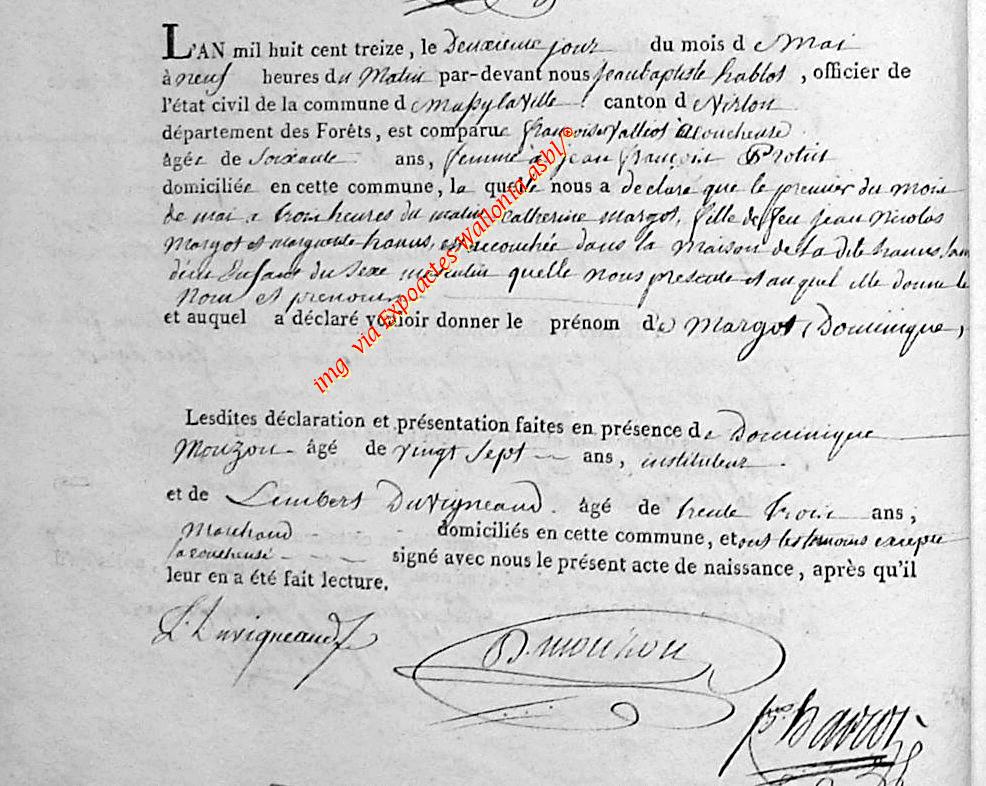 L'AN mil huit cent treize, le Deuxieme jour du mois de Mai
à neuf heures du Matin par-devant nous Jean baptiste hablot, officier de
l'état civil de la commune de Mussy la Ville canton de Virton
département des Forêts, est comparue françoise Valliot accoucheuse
âgée de Soixante ans, femme a jean françois Protin
domiciliée en cette commune, la quelle nous a declaré que le premier du mois
de mai a trois heures du matin Catherine Margot, fille de feu jean Nicolas
Margot et marguerite hanus, est accouchée dans la maison de la dite hanus,
d'un Enfant du Sexe masculin quelle nous presente et auquel elle donne le
Nom et prenom
et auquel a déclaré vouloir donner le prénom de Margot, Dominique,
Lesdites déclaration et présentation faites en présence de Dominique
Mouzon âgé de vingt Sept ans, instituteur
et de Lambert Duvigneaud âgé de trente trois ans,
Marchand domiciliés en cette commune, et ont les temoins excepté
la coucheuse signé avec nous le présent acte de naissance, après qu'il
leur en a été fait lecture.
L Duvigneaud
D mouzon
img via Expoactes Wallonia asbl/©